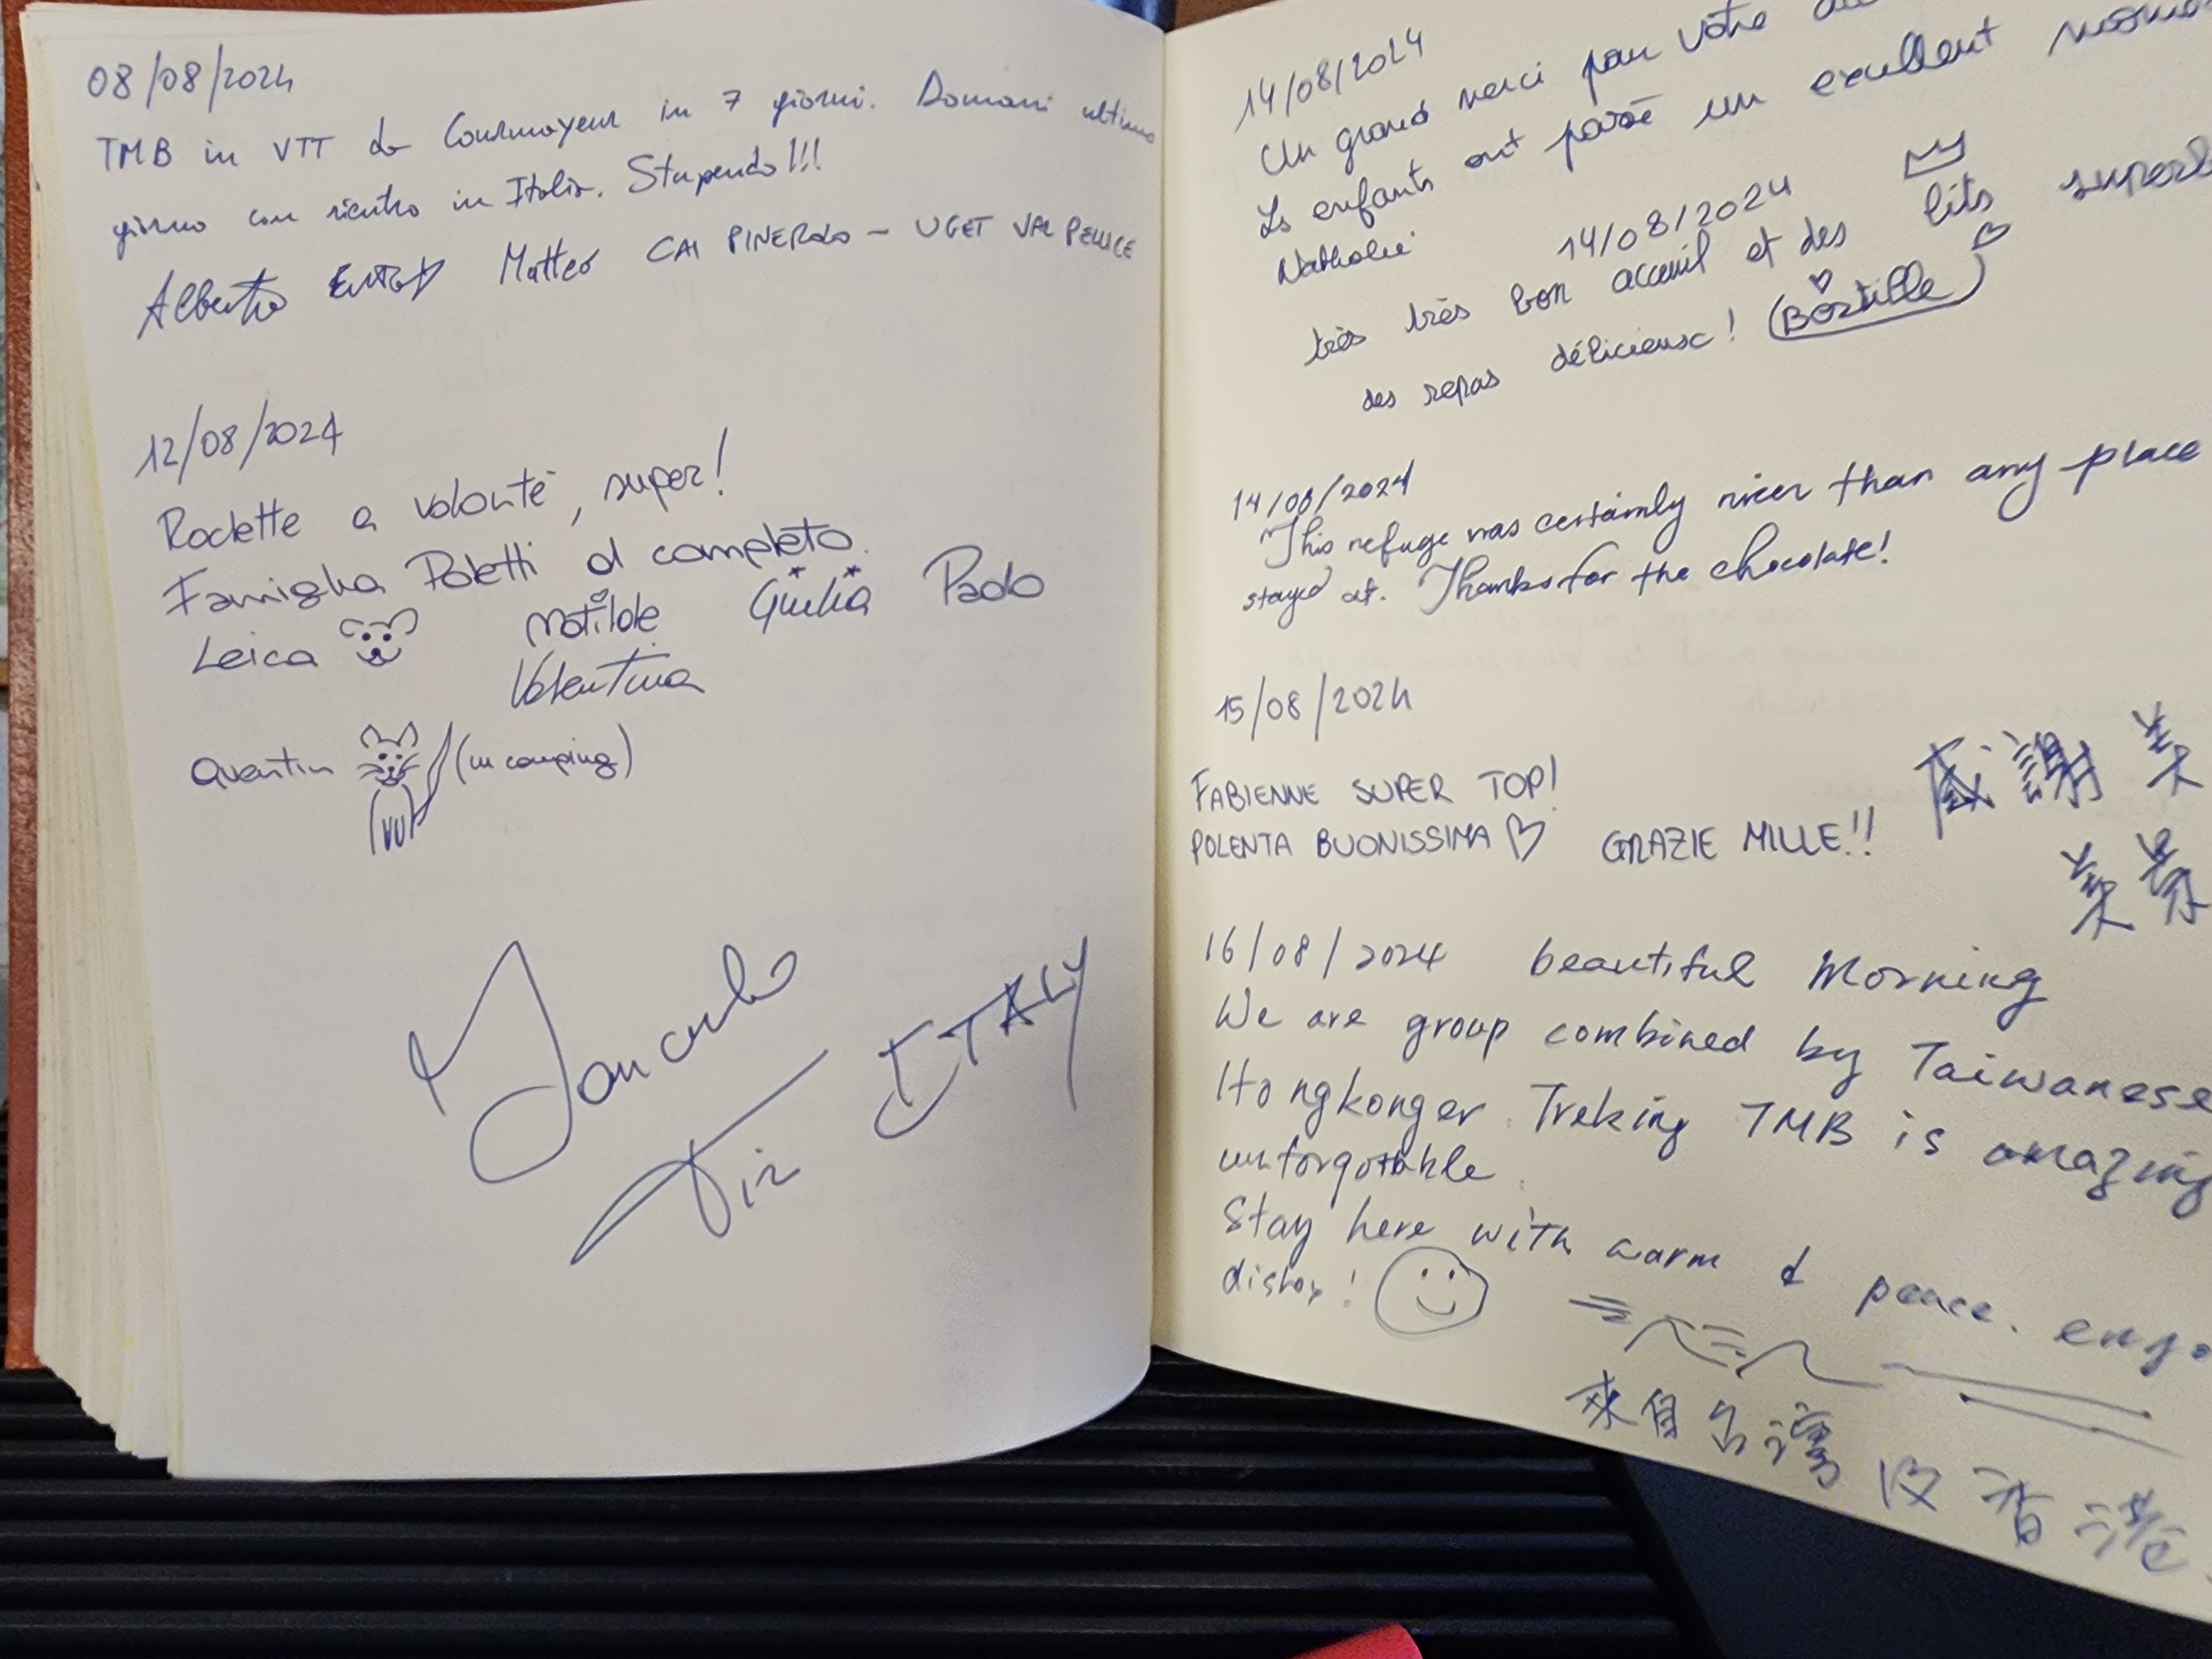 08/08/2024
TMB in VTT da Courmayeur in 7 giorni. Domani ultimo
giorno con rientro in Italia. Stupendo!!!
Alberto Matteo CAI PINEROLO - UGET VAL PELLICE
12/08/2024
Raclette a volonté, super!
Famiglia Poletti al completo.
Leica Matilde Giulia Paolo
Valentina
Quentin (in camping)
ITALY
14/08/2024
Un grand merci pour votre
Ls enfants ont passé un excellent
Nathalie
14/08/2024
très très bon acceuil et des lits
des repas délicieusc!
14/08/2024
This refuge was certainly nicer than any place
stayed at. Thanks for the chocolate!
15/08/2024
FABIENNE SUPER TOP!
POLENTA BUONISSIMA ♡ GRAZIE MILLE!!
感謝美
美景
16/08/2024 beautiful Morning
We are group combined by Taiwanese
Hongkonger. Treking TMB is amazing
unforgotable.
Stay here with warm & peace. enjo
來自台灣及香港